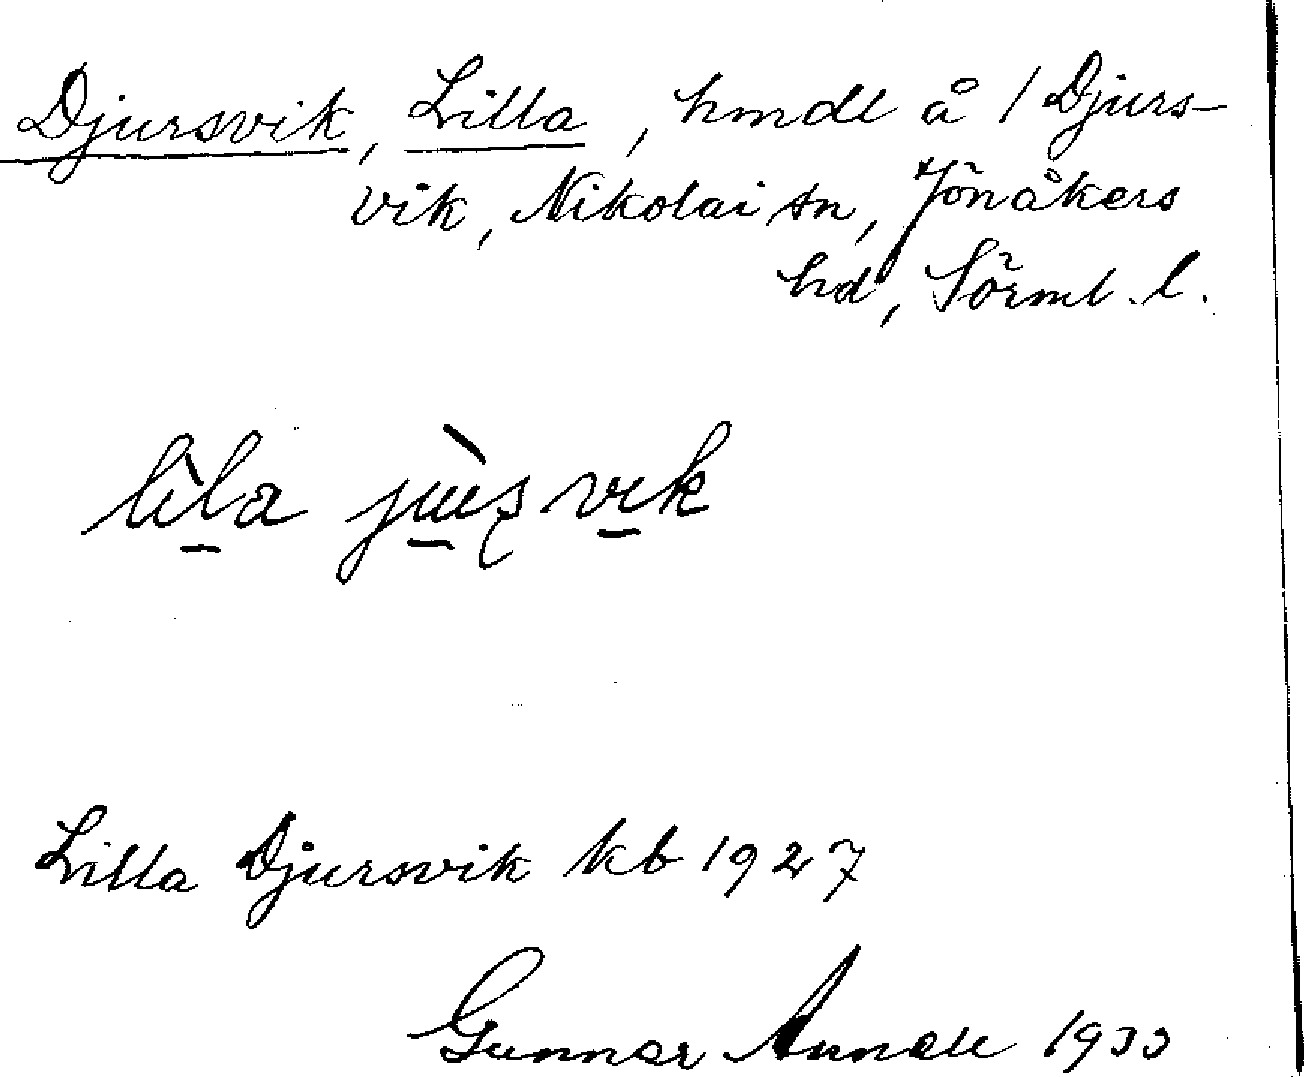 Djursvik, Lilla, hmdl å 1 Djurs-
vik, Nikolai sn, Jönåkers
hd, Sörml. l.
lìla jùs̨vik
Lilla Djursvik kb 1927
Gunnar 1933